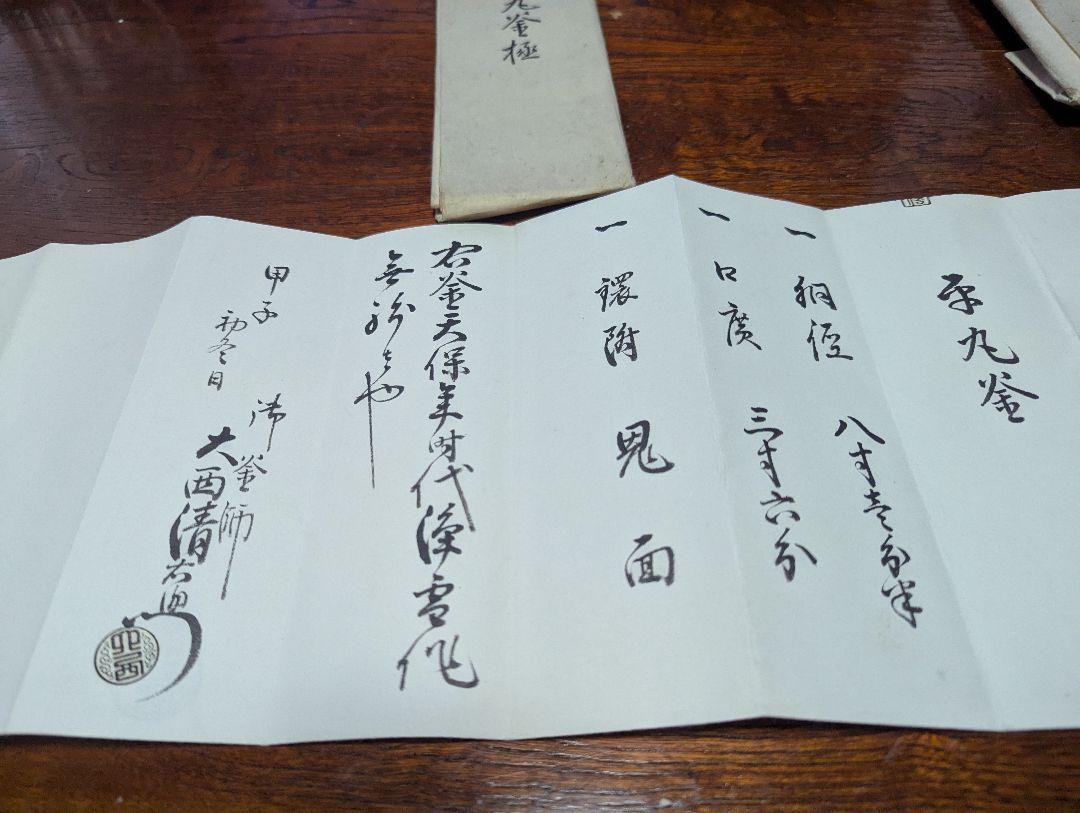 丸釜極
平丸釜
一 胴径 八寸壱分半
一 口廣 三寸六分
一 鐶附 鬼面
右釜天保年時代浄雪作
無紛者也
甲子
初冬日
御釜師
大西清右衛門
大西